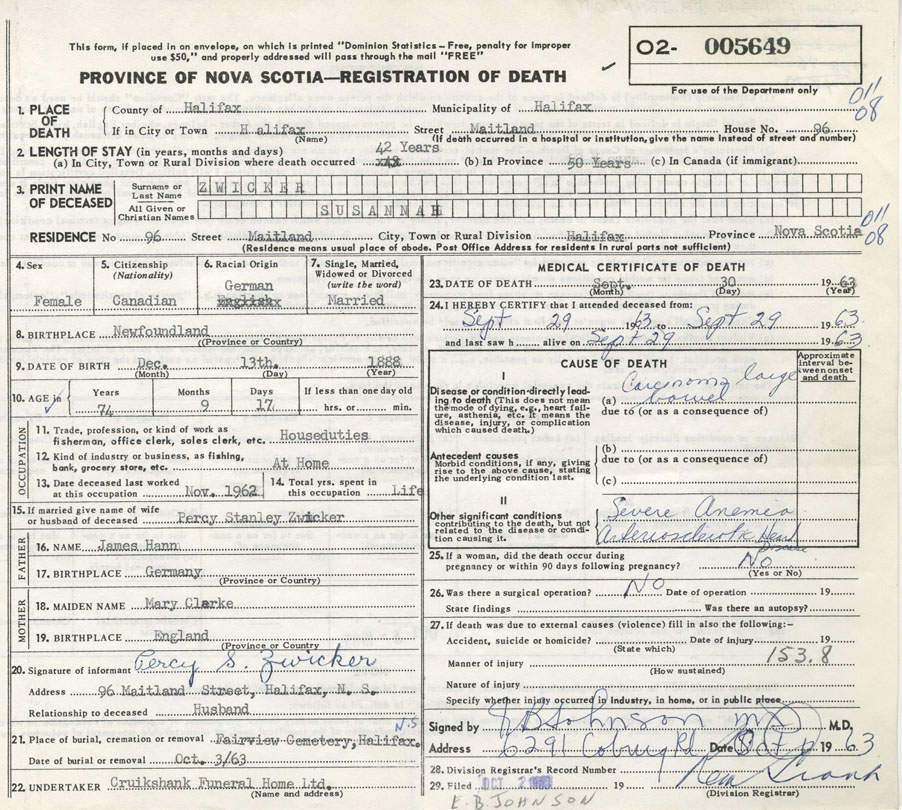 This form, if placed in an envelope, on which is printed "Dominion Statistics – Free, penalty for improper
use $50," and properly addressed will pass through the mail "FREE"
PROVINCE OF NOVA SCOTIA—REGISTRATION OF DEATH
02- 005649
For use of the Department only
011
08
1. PLACE OF DEATH
County of Halifax Municipality of Halifax
If in City or Town Halifax Street Maitland House No. 96
(Name) (If death occurred in a hospital or institution, give the name instead of street and number)
2. LENGTH OF STAY (in years, months and days)
(a) In City, Town or Rural Division where death occurred 42 Years (b) In Province 50 Years (c) In Canada (if immigrant)
3. PRINT NAME OF DECEASED
Surname or Last Name ZWICKER
All Given or Christian Names SUSANNAH
RESIDENCE No 96 Street Maitland City, Town or Rural Division Halifax Province Nova Scotia
(Residence means usual place of abode. Post Office Address for residents in rural parts not sufficient)
011
08
4. Sex Female
5. Citizenship (Nationality) Canadian
6. Racial Origin German English
7. Single, Married, Widowed or Divorced (write the word) Married
8. BIRTHPLACE Newfoundland
(Province or Country)
9. DATE OF BIRTH Dec. 13th. 1888
(Month) (Day) (Year)
10. AGE in Years 74 Months 9 Days 17 If less than one day old hrs. or min.
OCCUPATION
11. Trade, profession, or kind of work as fisherman, office clerk, sales clerk, etc. Houseduties
12. Kind of industry or business, as fishing, bank, grocery store, etc. At Home
13. Date deceased last worked at this occupation Nov. 1962
14. Total yrs. spent in this occupation Life
15. If married give name of wife or husband of deceased Percy Stanley Zwicker
FATHER
16. NAME James Hann
17. BIRTHPLACE Germany
(Province or Country)
MOTHER
18. MAIDEN NAME Mary Clarke
19. BIRTHPLACE England
(Province or Country)
20. Signature of informant Percy S. Zwicker
Address 96 Maitland Street, Halifax, N. S.
Relationship to deceased Husband
21. Place of burial, cremation or removal Fairview Cemetery, Halifax. N.S
Date of burial or removal Oct. 3/63
22. UNDERTAKER Cruikshank Funeral Home Ltd.
(Name and address)
MEDICAL CERTIFICATE OF DEATH
23. DATE OF DEATH Sept. 30 1963
(Month) (Day) (Year)
24. I HEREBY CERTIFY that I attended deceased from:
Sept 29 1963 to Sept 29 1963
and last saw h alive on Sept 29 1963
CAUSE OF DEATH
Approximate interval between onset and death
I
Disease or condition directly leading to death (This does not mean the mode of dying, e.g., heart failure, asthenia, etc. It means the disease, injury, or complication which caused death.)
(a) Carcinoma large bowel
due to (or as a consequence of)
Antecedent causes
Morbid conditions, if any, giving rise to the above cause, stating the underlying condition last.
(b)
due to (or as a consequence of)
(c)
II
Other significant conditions contributing to the death, but not related to the disease or condition causing it.
Severe Anemia
Arteriosclerotic Heart Disease
25. If a woman, did the death occur during pregnancy or within 90 days following pregnancy? No
(Yes or No)
26. Was there a surgical operation? No Date of operation 19
State findings Was there an autopsy?
27. If death was due to external causes (violence) fill in also the following:–
Accident, suicide or homicide? Date of injury 19
(State which)
153.8
Manner of injury
(How sustained)
Nature of injury
Specify whether injury occurred in industry, in home, or in public place
Signed by E B Johnson MD M.D.
Address 6291 Coburg Rd Date Oct 1963
28. Division Registrar's Record Number
29. Filed OCT 2 19
(Division Registrar)
E. B. JOHNSON